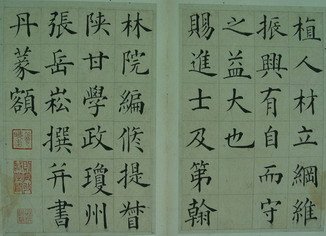 植人材立綱維
振興有自而守
之益大也
賜進士及第翰
林院編修提督
陝甘學政瓊州
張岳崧撰并書
丹篆額